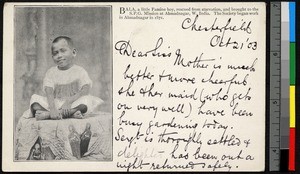 BALA, a little Famine boy, rescued from starvation, and brought to the
S.P.G. Mission at Ahmadnagar, W. India. The Society began work
in Ahmadnagar in 1871.
Chesterfield
Oct 21 '03
Dear Sis Mother is much
better & more cheerful
she & her maid (who gets
on very well) have been
busy gardening today.
Sergt is thoroughly settled &
delighted has been out a
night returned safely.